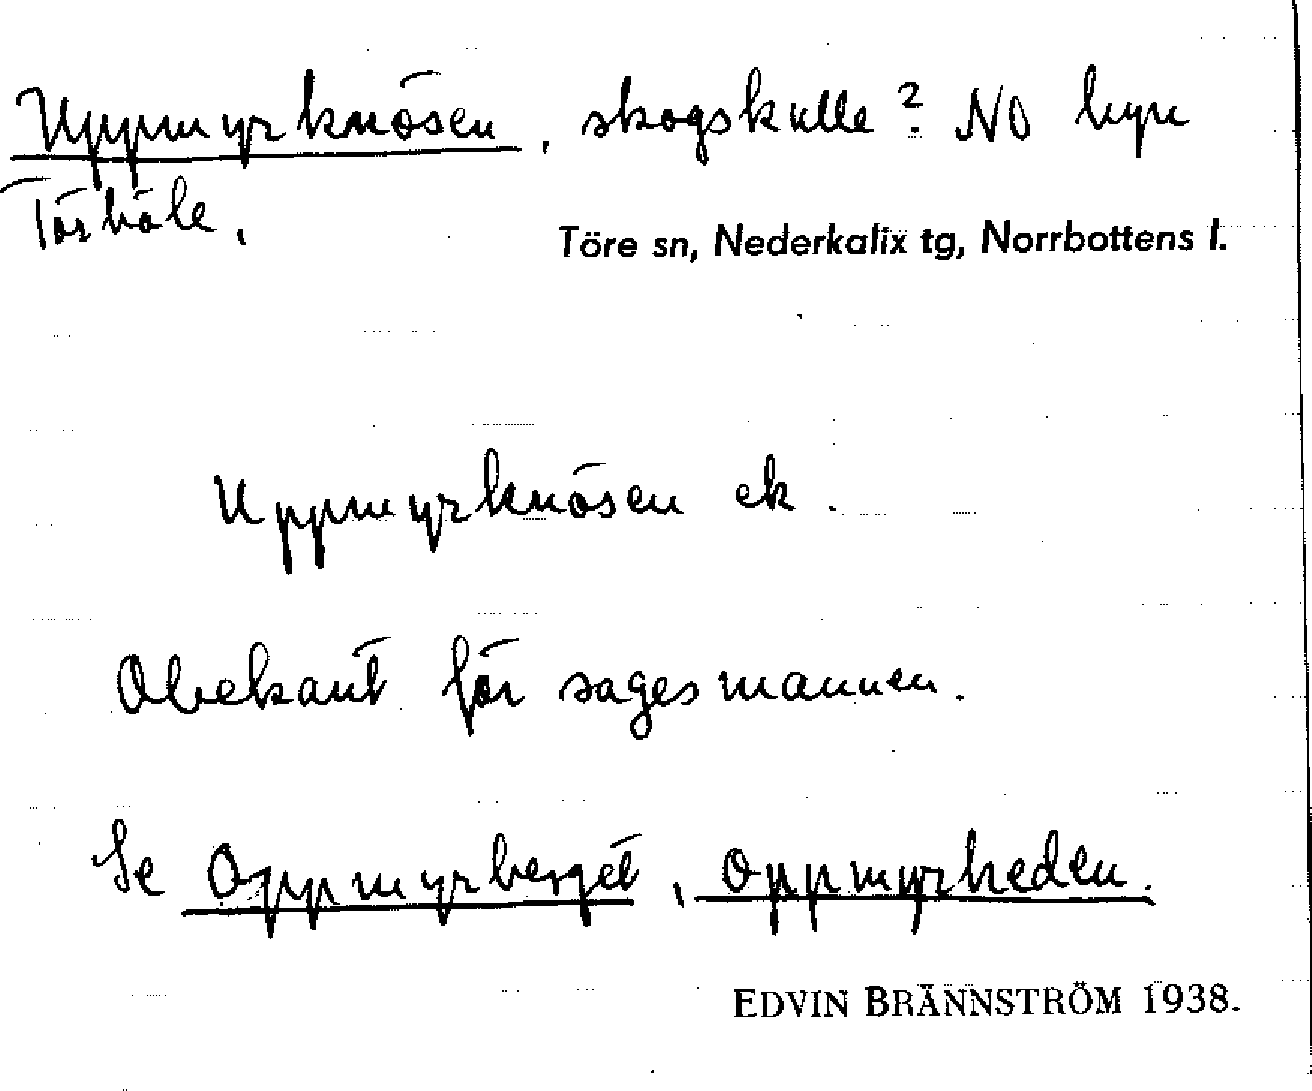 Uppmyrknösen, skogskulle? NO byn
Törböle.
Töre sn, Nederkalix tg, Norrbottens l.
Uppmyrknösen ek.
Obekant för sagesmannen.
Se Oppmyrberget, Oppmyrheden.
EDVIN BRÄNNSTRÖM 1938.